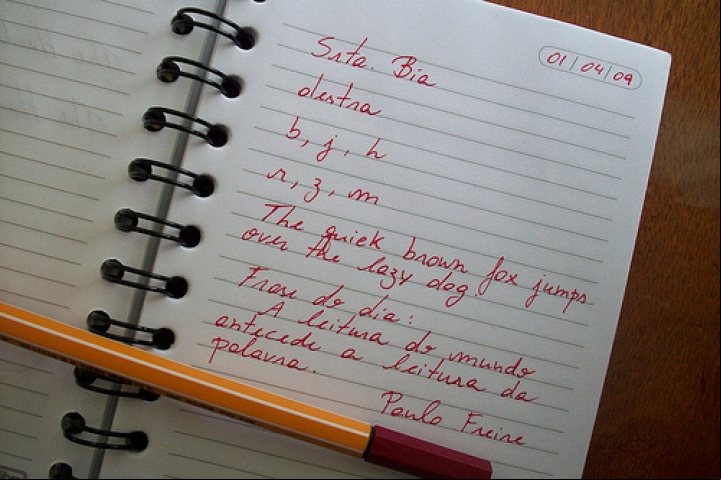 01/04/09
Srta. Bia
destra
b, j, h
r, z, m
The quick brown fox jumps
over the lazy dog.
Frase do dia:
A leitura do mundo
antecede a leitura da
palavra.
Paulo Freire